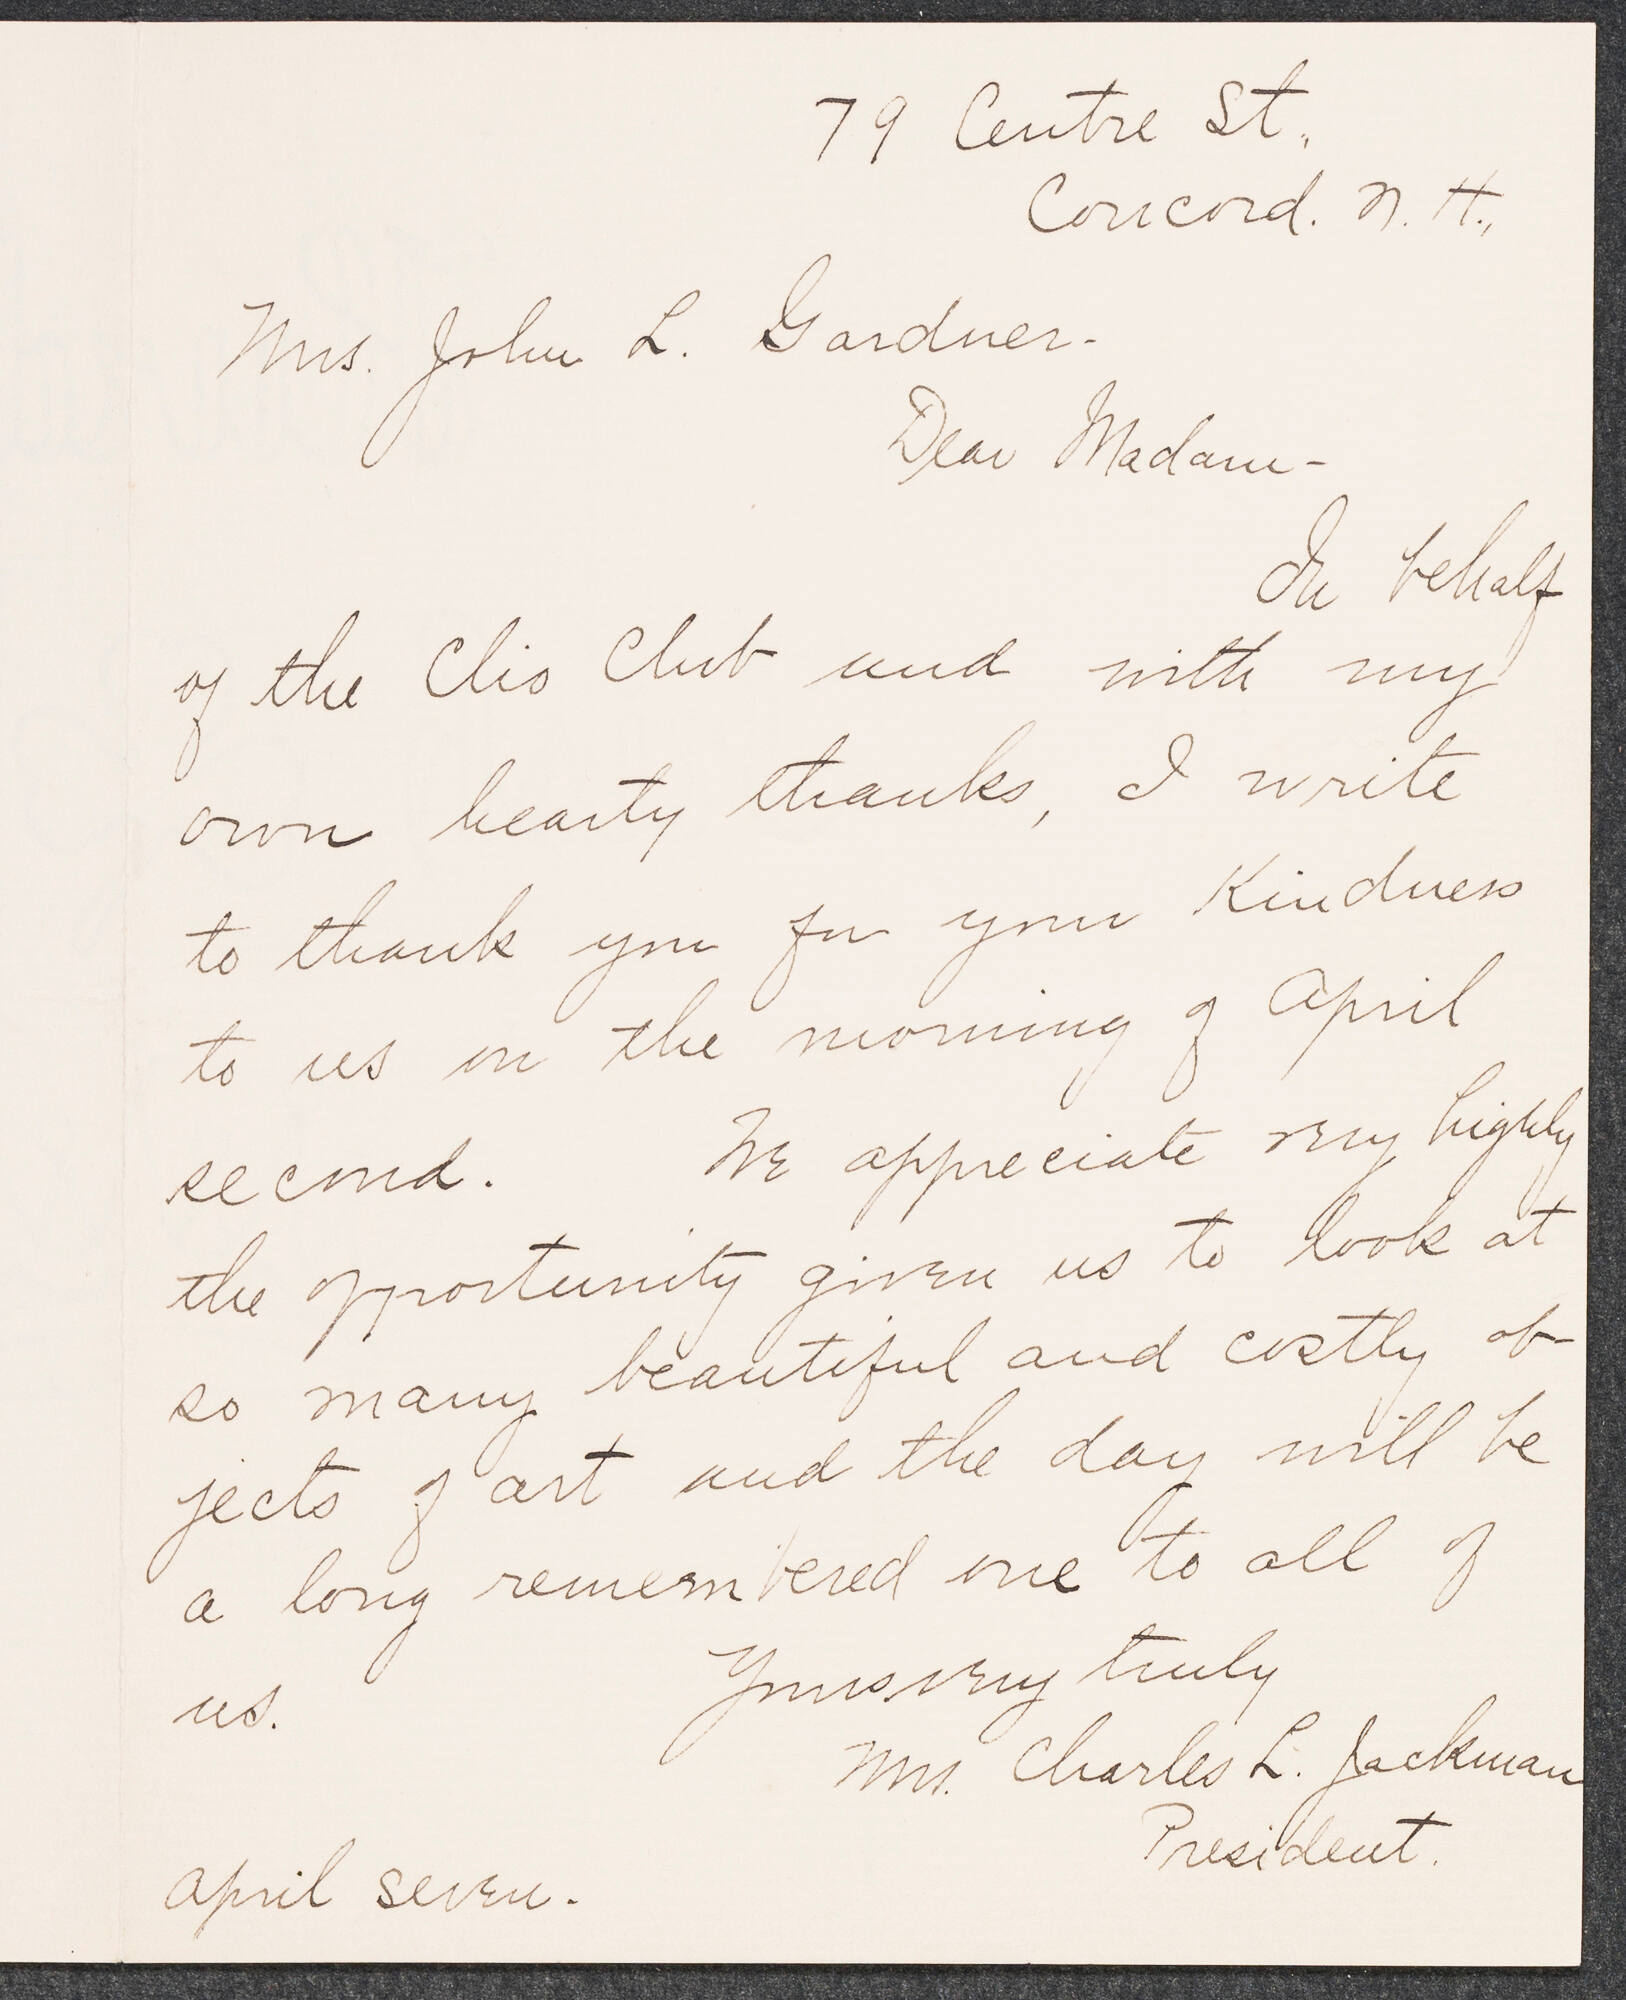 79 Centre St.,
Concord. N. H.,
Mrs. John L. Gardner-
Dear Madam-
In behalf
of the Clio Club and with my
own hearty thanks, I write
to thank you for your kindness
to us on the morning of April
second. We appreciate very highly
the opportunity given us to look at
so many beautiful and costly ob-
jects of art and the day will be
a long remembered one to all of
us. Yours very truly
Mrs. Charles L. Jackman
President.
April seven.